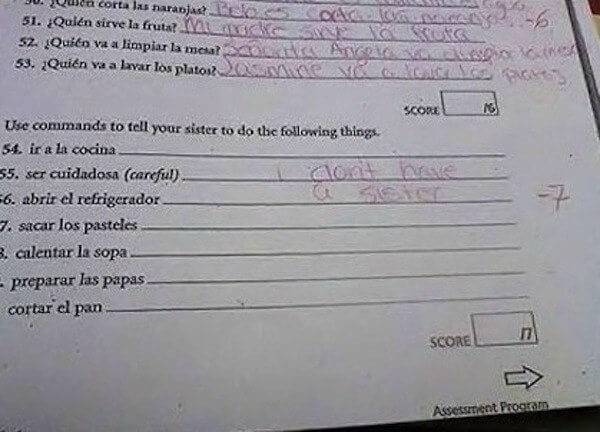 ¿Quién corta las naranjas? corta las -6
51. ¿Quién sirve la fruta? Mi madre sirve la fruta
52. ¿Quién va a limpiar la mesa? Angela va
53. ¿Quién va a lavar los platos? Jasmine va a lava los platos
SCORE /6
Use commands to tell your sister to do the following things.
54. ir a la cocina
55. ser cuidadosa (careful) i don't have
56. abrir el refrigerador a sister -7
7. sacar los pasteles
8. calentar la sopa
. preparar las papas
cortar el pan
SCORE /7
Assessment Program